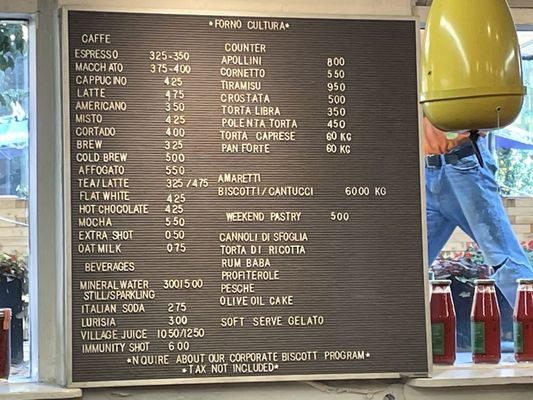 *FORNO CULTURA*
CAFFE
ESPRESSO 325-350
MACCHATO 375-400
CAPPUCINO 425
LATTE 475
AMERICANO 350
MISTO 425
CORTADO 400
BREW 325
COLD BREW 500
AFFOGATO 550
TEA/LATTE 325/475
FLAT WHITE 425
HOT CHOCOLATE 425
MOCHA 550
EXTRA SHOT 050
OAT MILK 075
BEVERAGES
MINERAL WATER 300|500
STILL/SPARKLING
ITALIAN SODA 275
LURISIA 300
VILLAGE JUICE 1050/1250
IMMUNITY SHOT 600
COUNTER
APOLLINI 800
CORNETTO 550
TIRAMISU 950
CROSTATA 500
TORTA LIBRA 350
POLENTA TORTA 450
TORTA CAPRESE 60 KG
PAN FORTE 60 KG
AMARETTI
BISCOTTI/CANTUCCI 6000 KG
WEEKEND PASTRY 500
CANNOLI DI SFOGLIA
TORTA DI RICOTTA
RUM BABA
PROFITEROLE
PESCHE
OLIVE OIL CAKE
SOFT SERVE GELATO
*NQUIRE ABOUT OUR CORPORATE BISCOTT PROGRAM*
*TAX NOT INCLUDED*